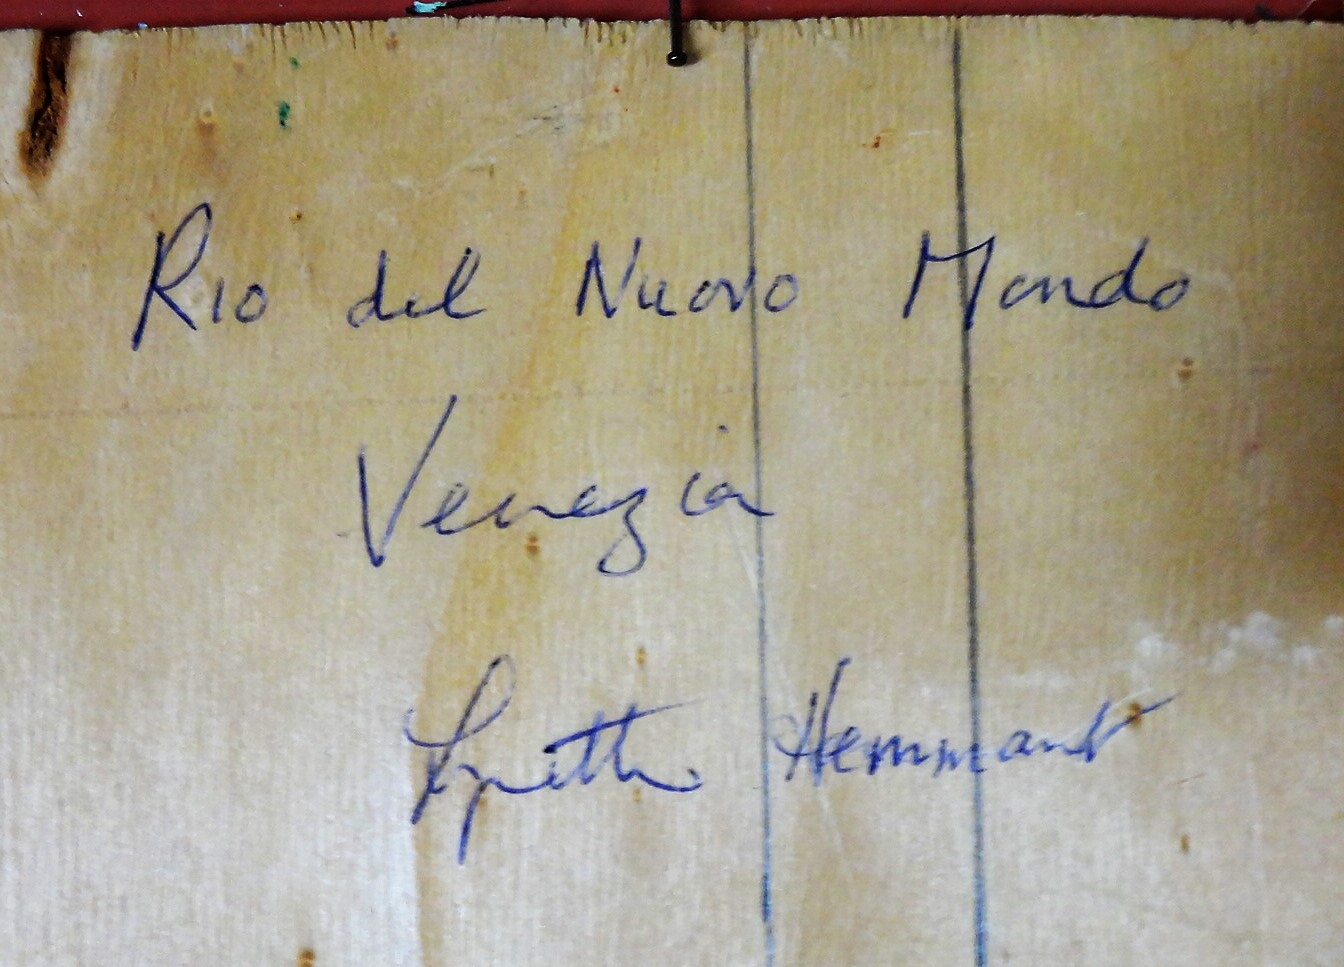 Rio del Nuovo Mondo
Venezia
Lynette Hemmant